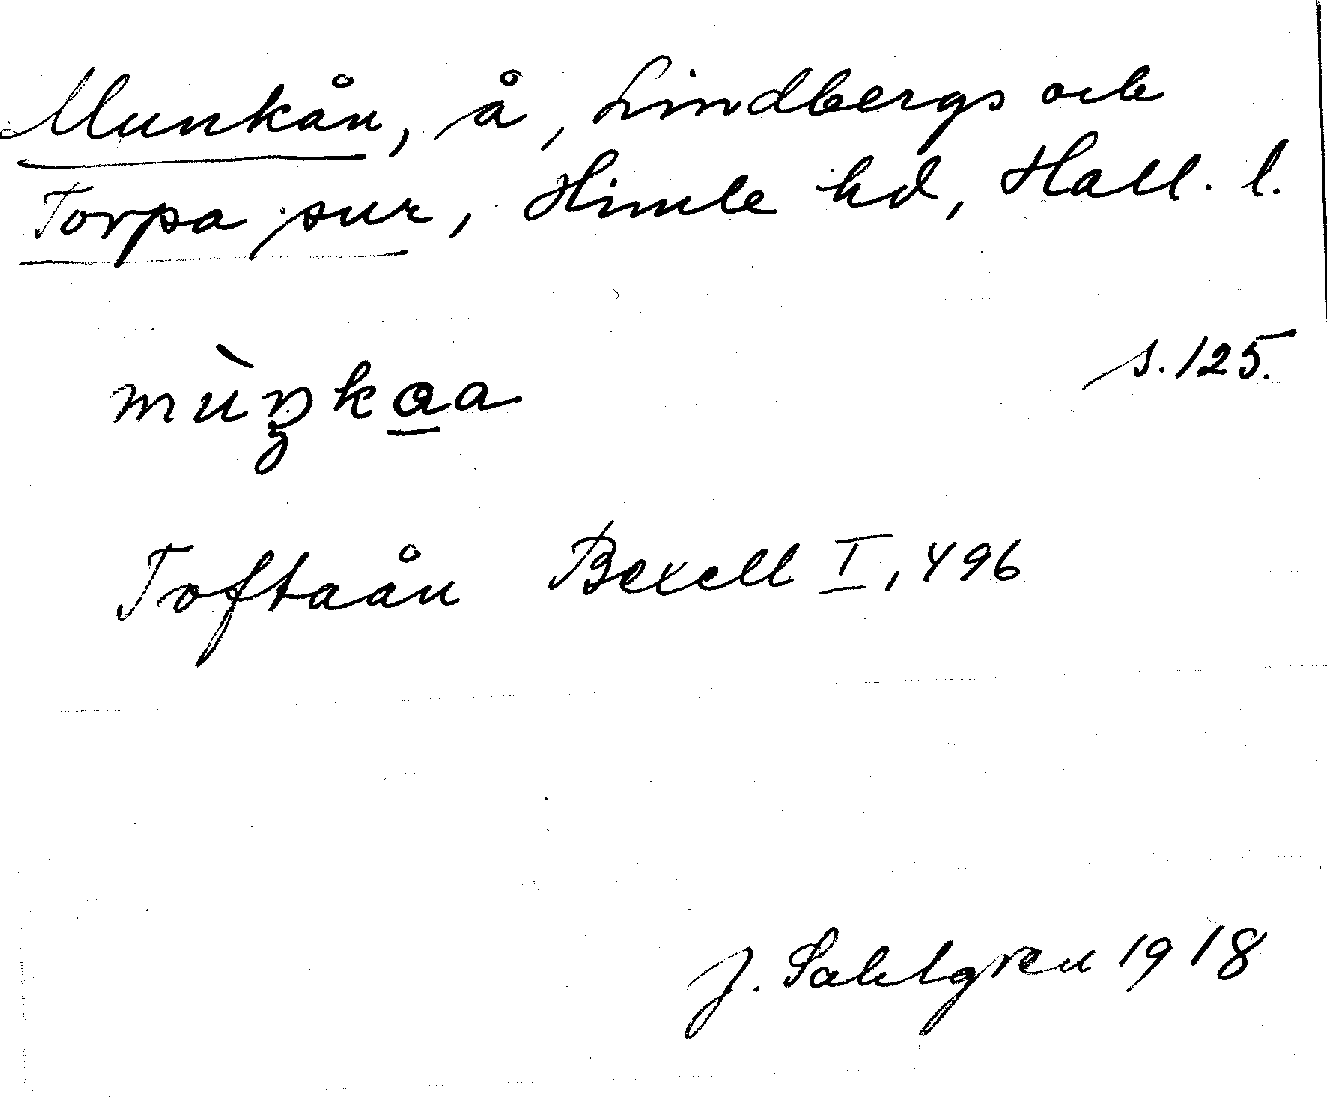 Munkån, å, Lindbergs och
Torpa snr, Himle hd, Hall. l.
s. 125.
mùŋkɑa
Toftaån Bexell I, 496
J. Sahlgren 1918